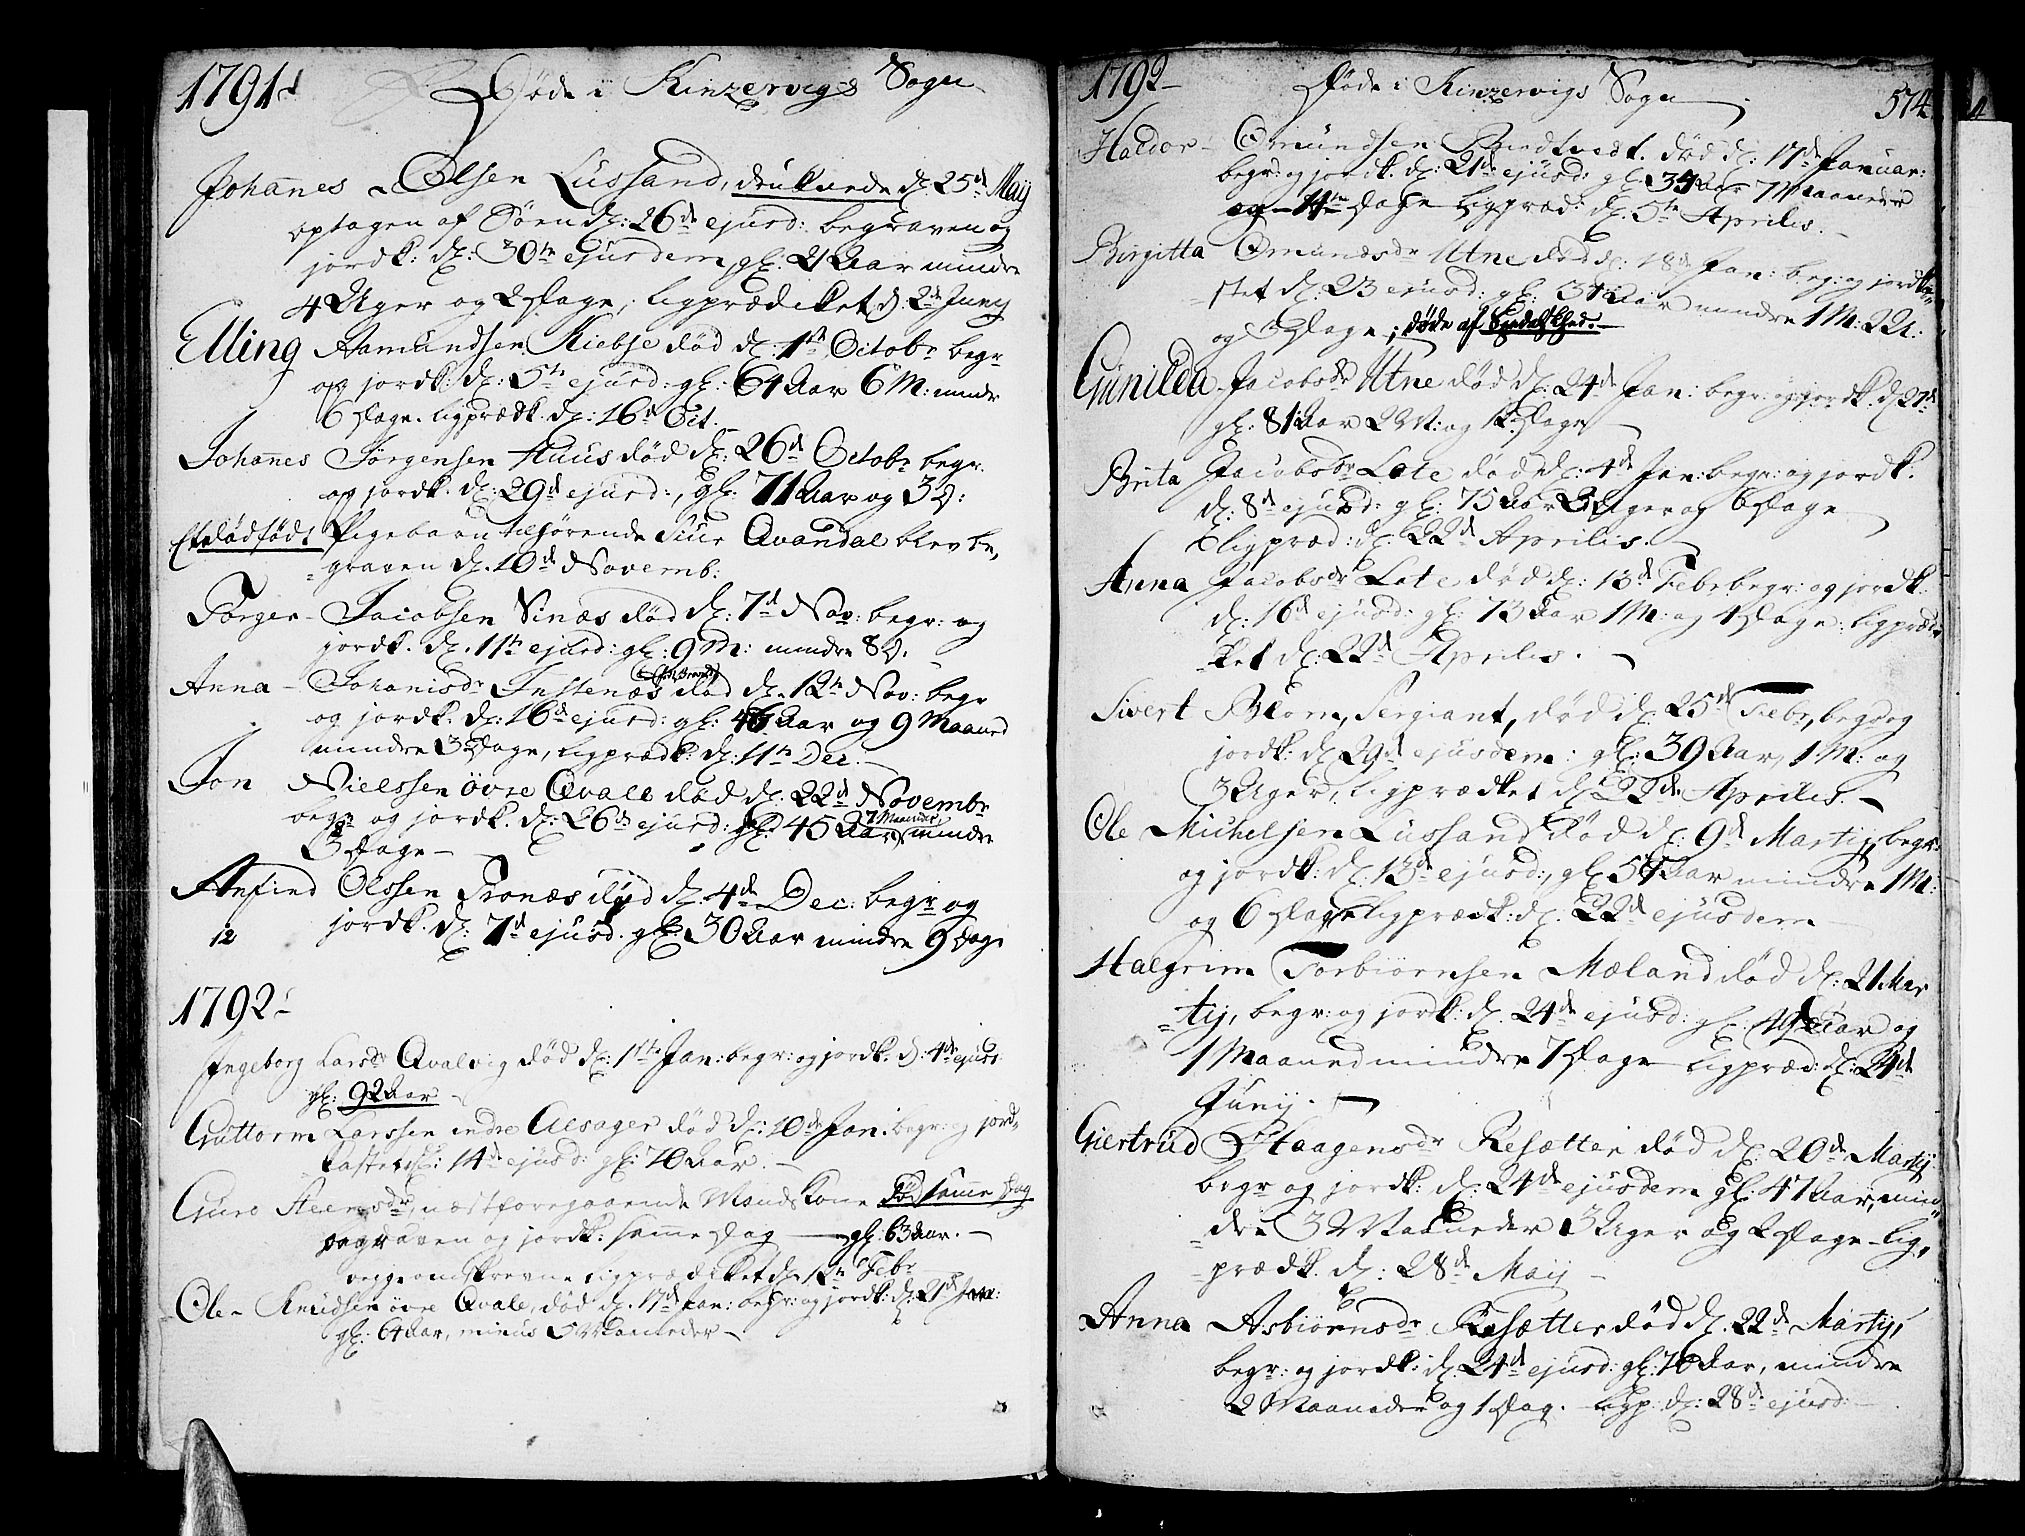 1791
Døde i Kinzervigs Sogn
Johannes Olsen Lussand, druknede d: 25de Maij
optagen af Søen d: 26de ejusd: begraven og
jordk: d: 30te ejusdem, gl: 21 Aar mindre
4 Uger og 2 Dage, ligprædiket d. 2de Junij
Elling Aamundsen Kiebse død d: 1ste Octobr begr
og jordk: d: 5te ejusd: gl: 64 Aar 6 M: mindr
6 Dage. ligprædk. d: 16de Oct.
Johannes Jørgensen Huus død d: 26de Octobr begr.
og jordk. d: 29de ejusd:, gl: 71 Aar og 3 D:
Et dødfødt Pigebarn tilhørende Siur Qvandal blev be,
graven d. 10de Novemb:
Torger Jacobsen Sinæs død d: 7de Nov: begr: og
jordk. d. 11te ejusd: gl: 9 M: mindre 8 D.
Anna Johanisdr Instenæs død d. 12te Nov: begr
og jordk. d: 16de ejusd: gl: Aar og 9 Maaned
mindre 3 Dage, ligprædk: d: 11te Dec:
Jon Nielssen øvre Qvale død d: 22de Novembr
begr og jordk. d: 26de ejusd: gl: 45 Aar 7 Maaneder mindre
3 Dage
Anfind Olssen Tronæs død d. 4de Dec: begr og
12 jordk. d: 7de ejusd. gl: 30 Aar mindre 9 Dage
1792
Ingeborg Larsdr Qvalvig død d: 1ste Jan: begr: og jordk. d. 4de ejusd
gl: 92 Aar
Guttorm Larssen indre Alsager død d: 10de Jan: begr: og jord-
kastet d: 14de ejusd: gl: 70 Aar.
Guro Steensdr, næstforegaaende Mands Kone død samme Dag
begraven og jordk: samme Dag gl. 63 Aar.
begge omskrevne ligprædiket d. 12te Febr
Ole Knudsen øvre Qvale, død d. 17de Jan: begr: og jordk: d: 21de Jan:
gl: 64 Aar, minus 5 Maaneder
1792
Døde i Kinzervigs Sogn
574
Haldor Omundsen død d: 17de Januar:
begr: og jordk. d: 21de ejusd: gl: Aar 7 Maaneder
og 11te Dage ligpræd: d. 5te Aprilis.
Birgitta Omundsdr Utne død d: 18de Jan: beg: og jordka-
stet d: 23 ejusd: gl: Aar mindre 1 M: 2 U:
og 3 Dage; døde af
Gunilda Jacobsdr Utne død d: 24de Jan: begr: og jordk. d 27de
gl: 81 Aar 2 M: og 12 Dage
Brita Jacobsdr Lote død d: 4de Jan: begr: og jordk.
d: 8de ejusd: gl: 75 Aar 3 Uger og 6 Dage
ligpræd: d: 22de Aprilis.
Anna Jacobsdr Lote, død d: 13de Febr begr: og jordk:
d: 16de ejusd: gl: 73 Aar 1 M: og 4 Dage: ligprædi-
ket d: 22de Aprilis.
Sivert Blom, Sergiant, død d: 25de Febr, begr og
jordk: d: 29de ejusdem: gl: 39 Aar, 1 M: og
3 Uger, ligprædket d: 22de Aprilis.
Ole Michelsen Lussand død d: 9de Martij, begr:
og jordk: d: 13de ejusd:, gl: Aar mindre 1 M:
og 6 Dage ligprædk: d: 22de ejusdem
Halgrim Torbiørnsen Mæland død d: 21 Mar
tij, begr: og jordk: d. 24de ejusd: gl: Aar og
1 Maaned mindre 7 Dage ligpræd: d: 24de
Junij.
Giertrud Haagensdr Resætter død d: 20de Martij
begr og jordk: d: 24de ejusdem gl: 47 Aar, min
dre 3 Maaneder 3 Uger og 2 Dage lig,
prædk. d: 28de Maij
Anna Asbiørnsdr Resætter død d. 22de Martij,
begr: og jordk: d: 24de ejusd: gl: 70 Aar, mindre
2 Maaneder og 1 Dag. ligp: d: 28de ejusd: